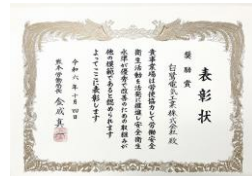 表彰状
奨励賞
白鷺電気工業株式会社殿
貴事業場は労使協力して労働安全
衛生活動を活発に推進し安全衛生
水準が優秀で改善のための取組みが
他の模範であると認められます
よってここに表彰します
令和六年十月四日
熊本労働局長 金成真一